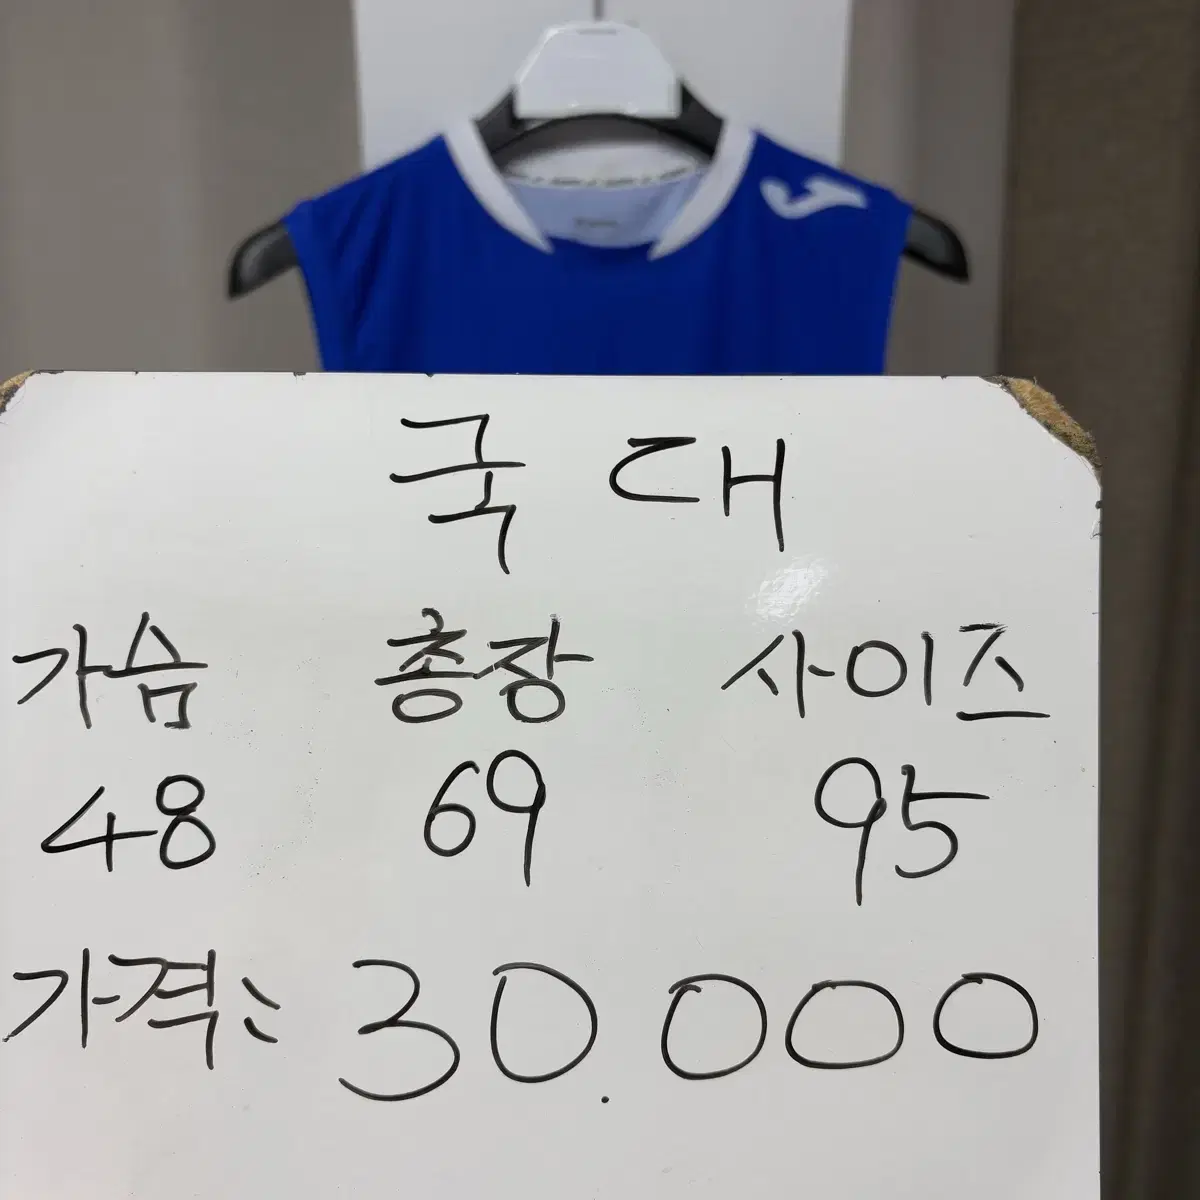 국대
가슴 총장 사이즈
48 69 95
가격: 30.000